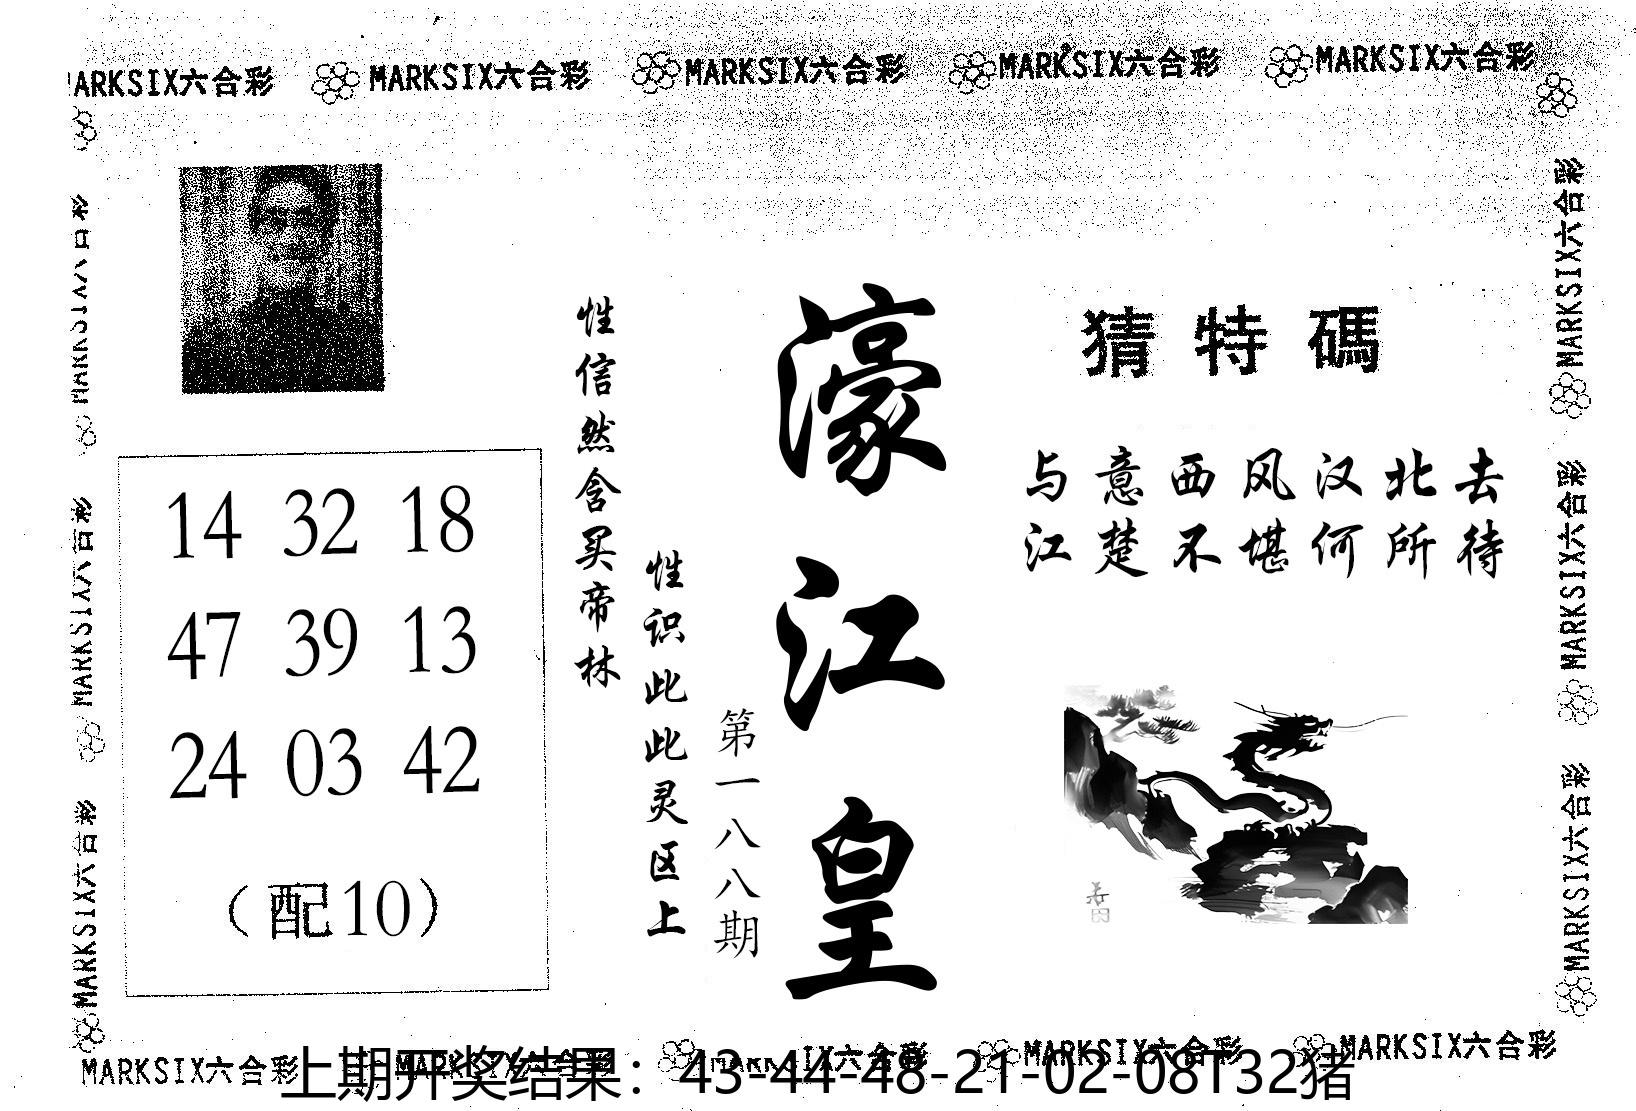 MARKSIX六合彩 MARKSIX六合彩 MARKSIX六合彩 MARKSIX六合彩 MARKSIX六合彩
MARKSIX六合彩
MARKSIX六合彩
MARKSIX六合彩
14 32 18
47 39 13
24 03 42
（配10）
性信然含买帝林
性识此此灵区上
第一八八期
濠江皇
猜特碼
与意西风汉北去
江楚不堪何所待
MARKSIX六合彩
MARKSIX六合彩
MARKSIX六合彩
MARKSIX六合彩 MARKSIX六合彩 MARKSIX六合彩 MARKSIX六合彩 MARKSIX六合彩
上期开奖结果：43-44-48-21-02-08T32猪